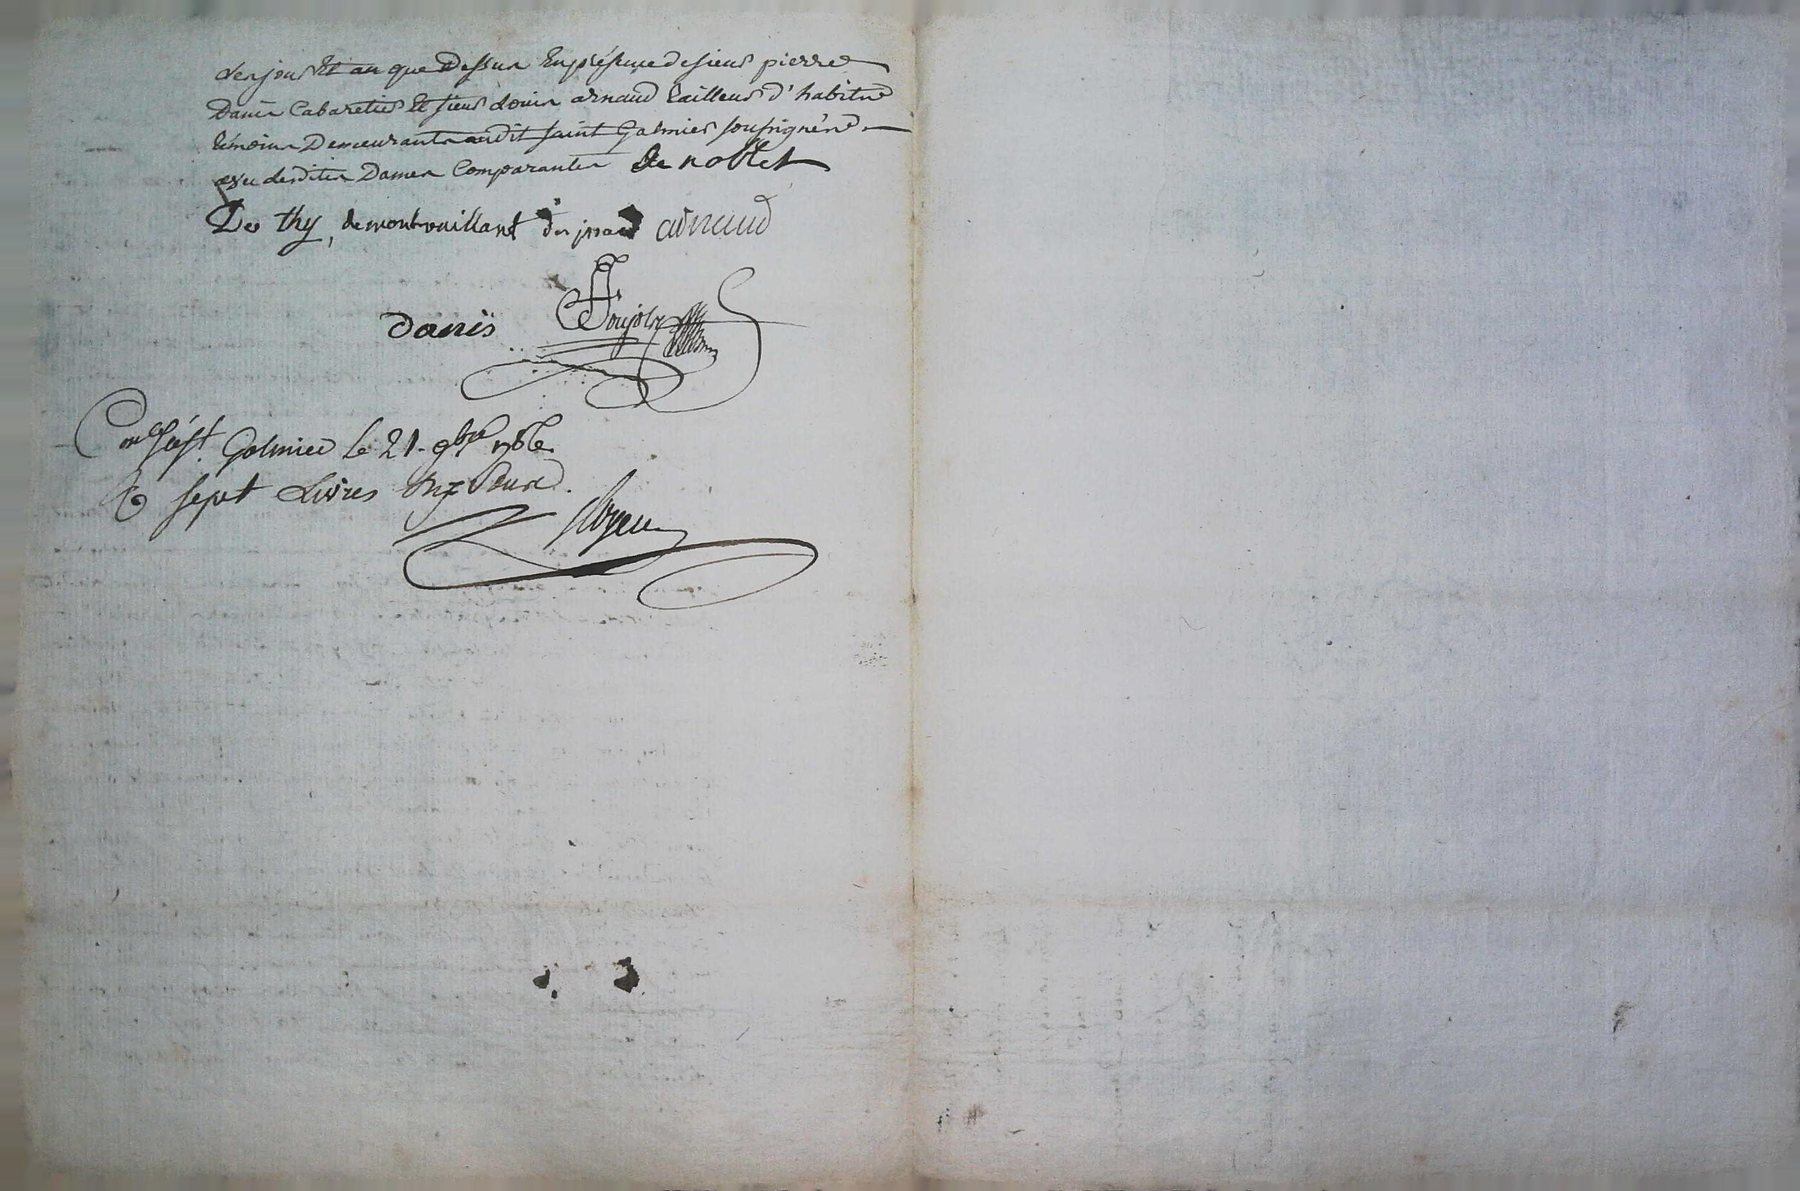 les jour et an que dessus En présence de sieur pierre
Danis Cabaretier Et sieur Louis arnaud tailleur d'habits
témoins Demeurants audit saint Galmier soussignés
avec lesdites Dames Comparantes De noblet
De thy, de montvaillant arnaud
danis
st. Galmier Le 21. 9bre
sept Livres dix sous